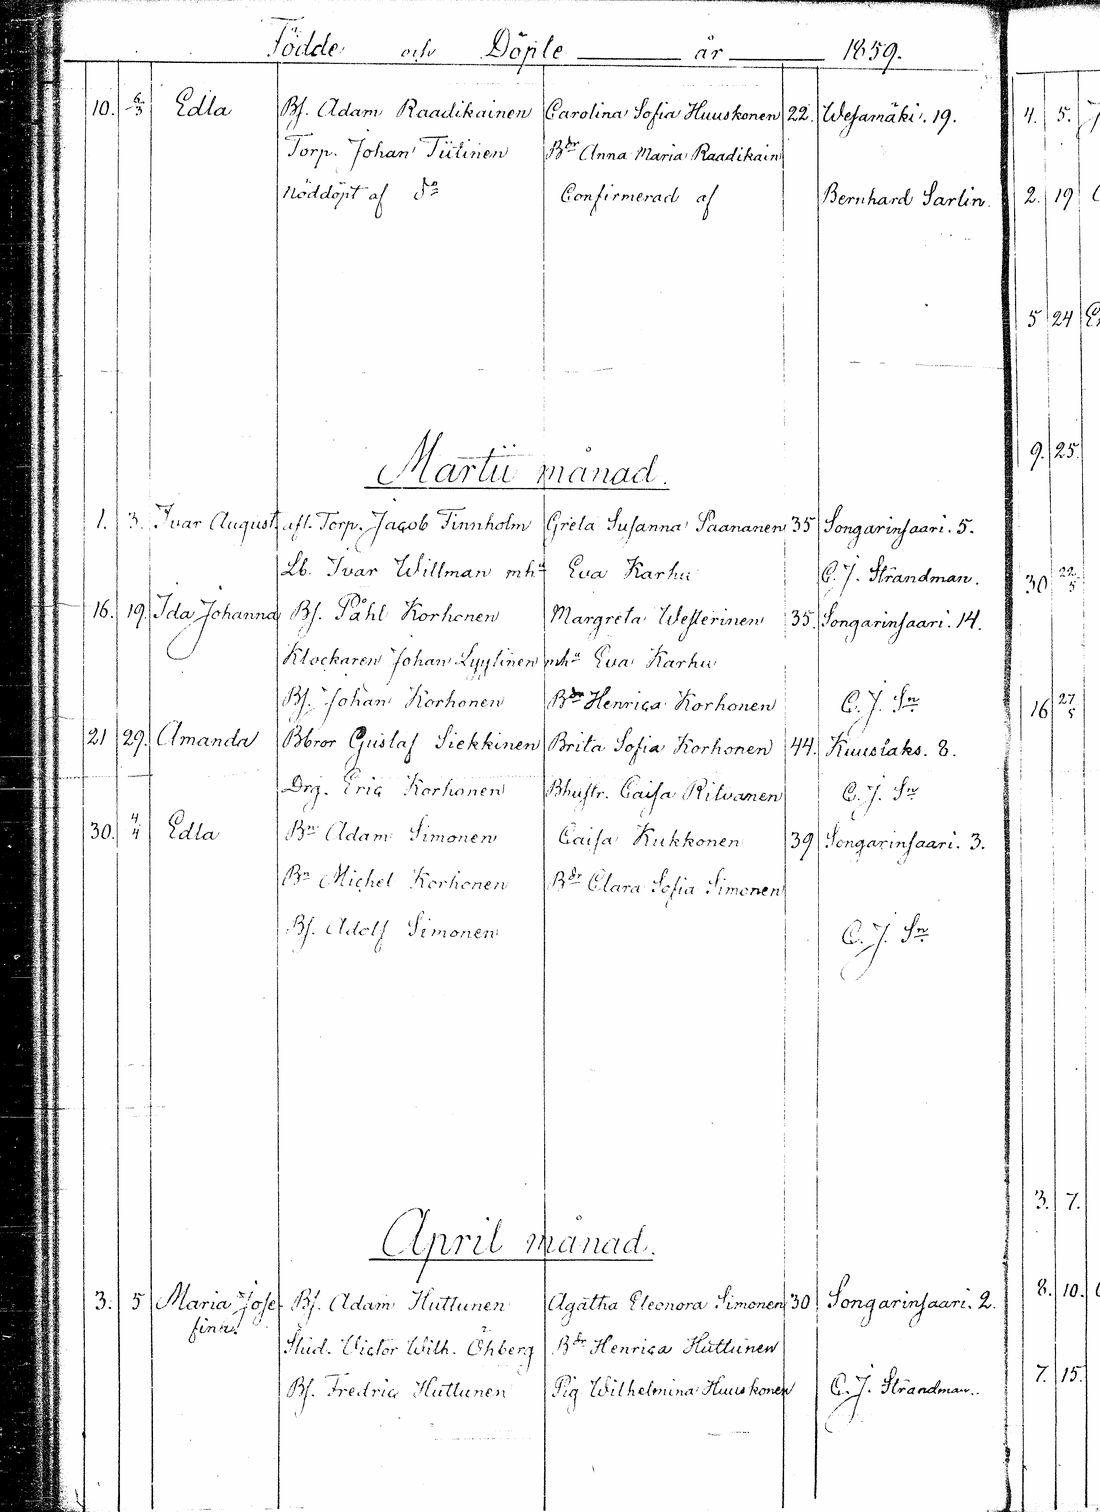 Födde och Döpte år 1859.
10. 6/3 Edla Bf. Adam Raadikainen Carolina Sofia Huuskonen 22. Wesamäki. 19.
Torp. Johan Tiitinen Bdr Anna Maria Raadikain
Nöddöpt af Dn Confirmerad af Bernhard Sarlin.
Martii månad.
1. 3. Ivar August afl. Torp. Jacob Finnholm Greta Susanna Paananen 35 Songarinsaari. 5.
Lb. Ivar Willman mhu Eva Karhu C. J. Strandman.
16. 19. Ida Johanna Bf. Påhl Korhonen Margreta Westerinen 35. Songarinsaari. 14.
Klockaren Johan Lyytinen mhu Eva Karhu
Bf. Johan Korhonen Bdr Henrica Korhonen C. J. Sn
21 29. Amanda Bbror Gustaf Siekkinen Brita Sofia Korhonen 44. Kuuslaks. 8.
Drg. Eric Korhonen Bhustr. Caisa Ritvanen C. J. Sn
30. 4/4 Edla Bn Adam Simonen Caisa Kukkonen 39 Songarinsaari. 3.
Bn Michel Korhonen Bdr Clara Sofia Simonen
Bf. Adolf Simonen C. J. Sn
April månad.
3. 5 Maria Jose- Bf. Adam Huttunen Agatha Eleonora Simonen 30 Songarinsaari. 2.
fina.
Stud. Victor Wilh. Öhberg Bdr Henrica Huttunen
Bf. Fredric Huttunen Pig Wilhelmina Huuskonen C. J. Strandman.
4. 5.
2. 19
5 24
9. 25.
30 22/5
16 27/5
3. 7.
8. 10.
7. 15.